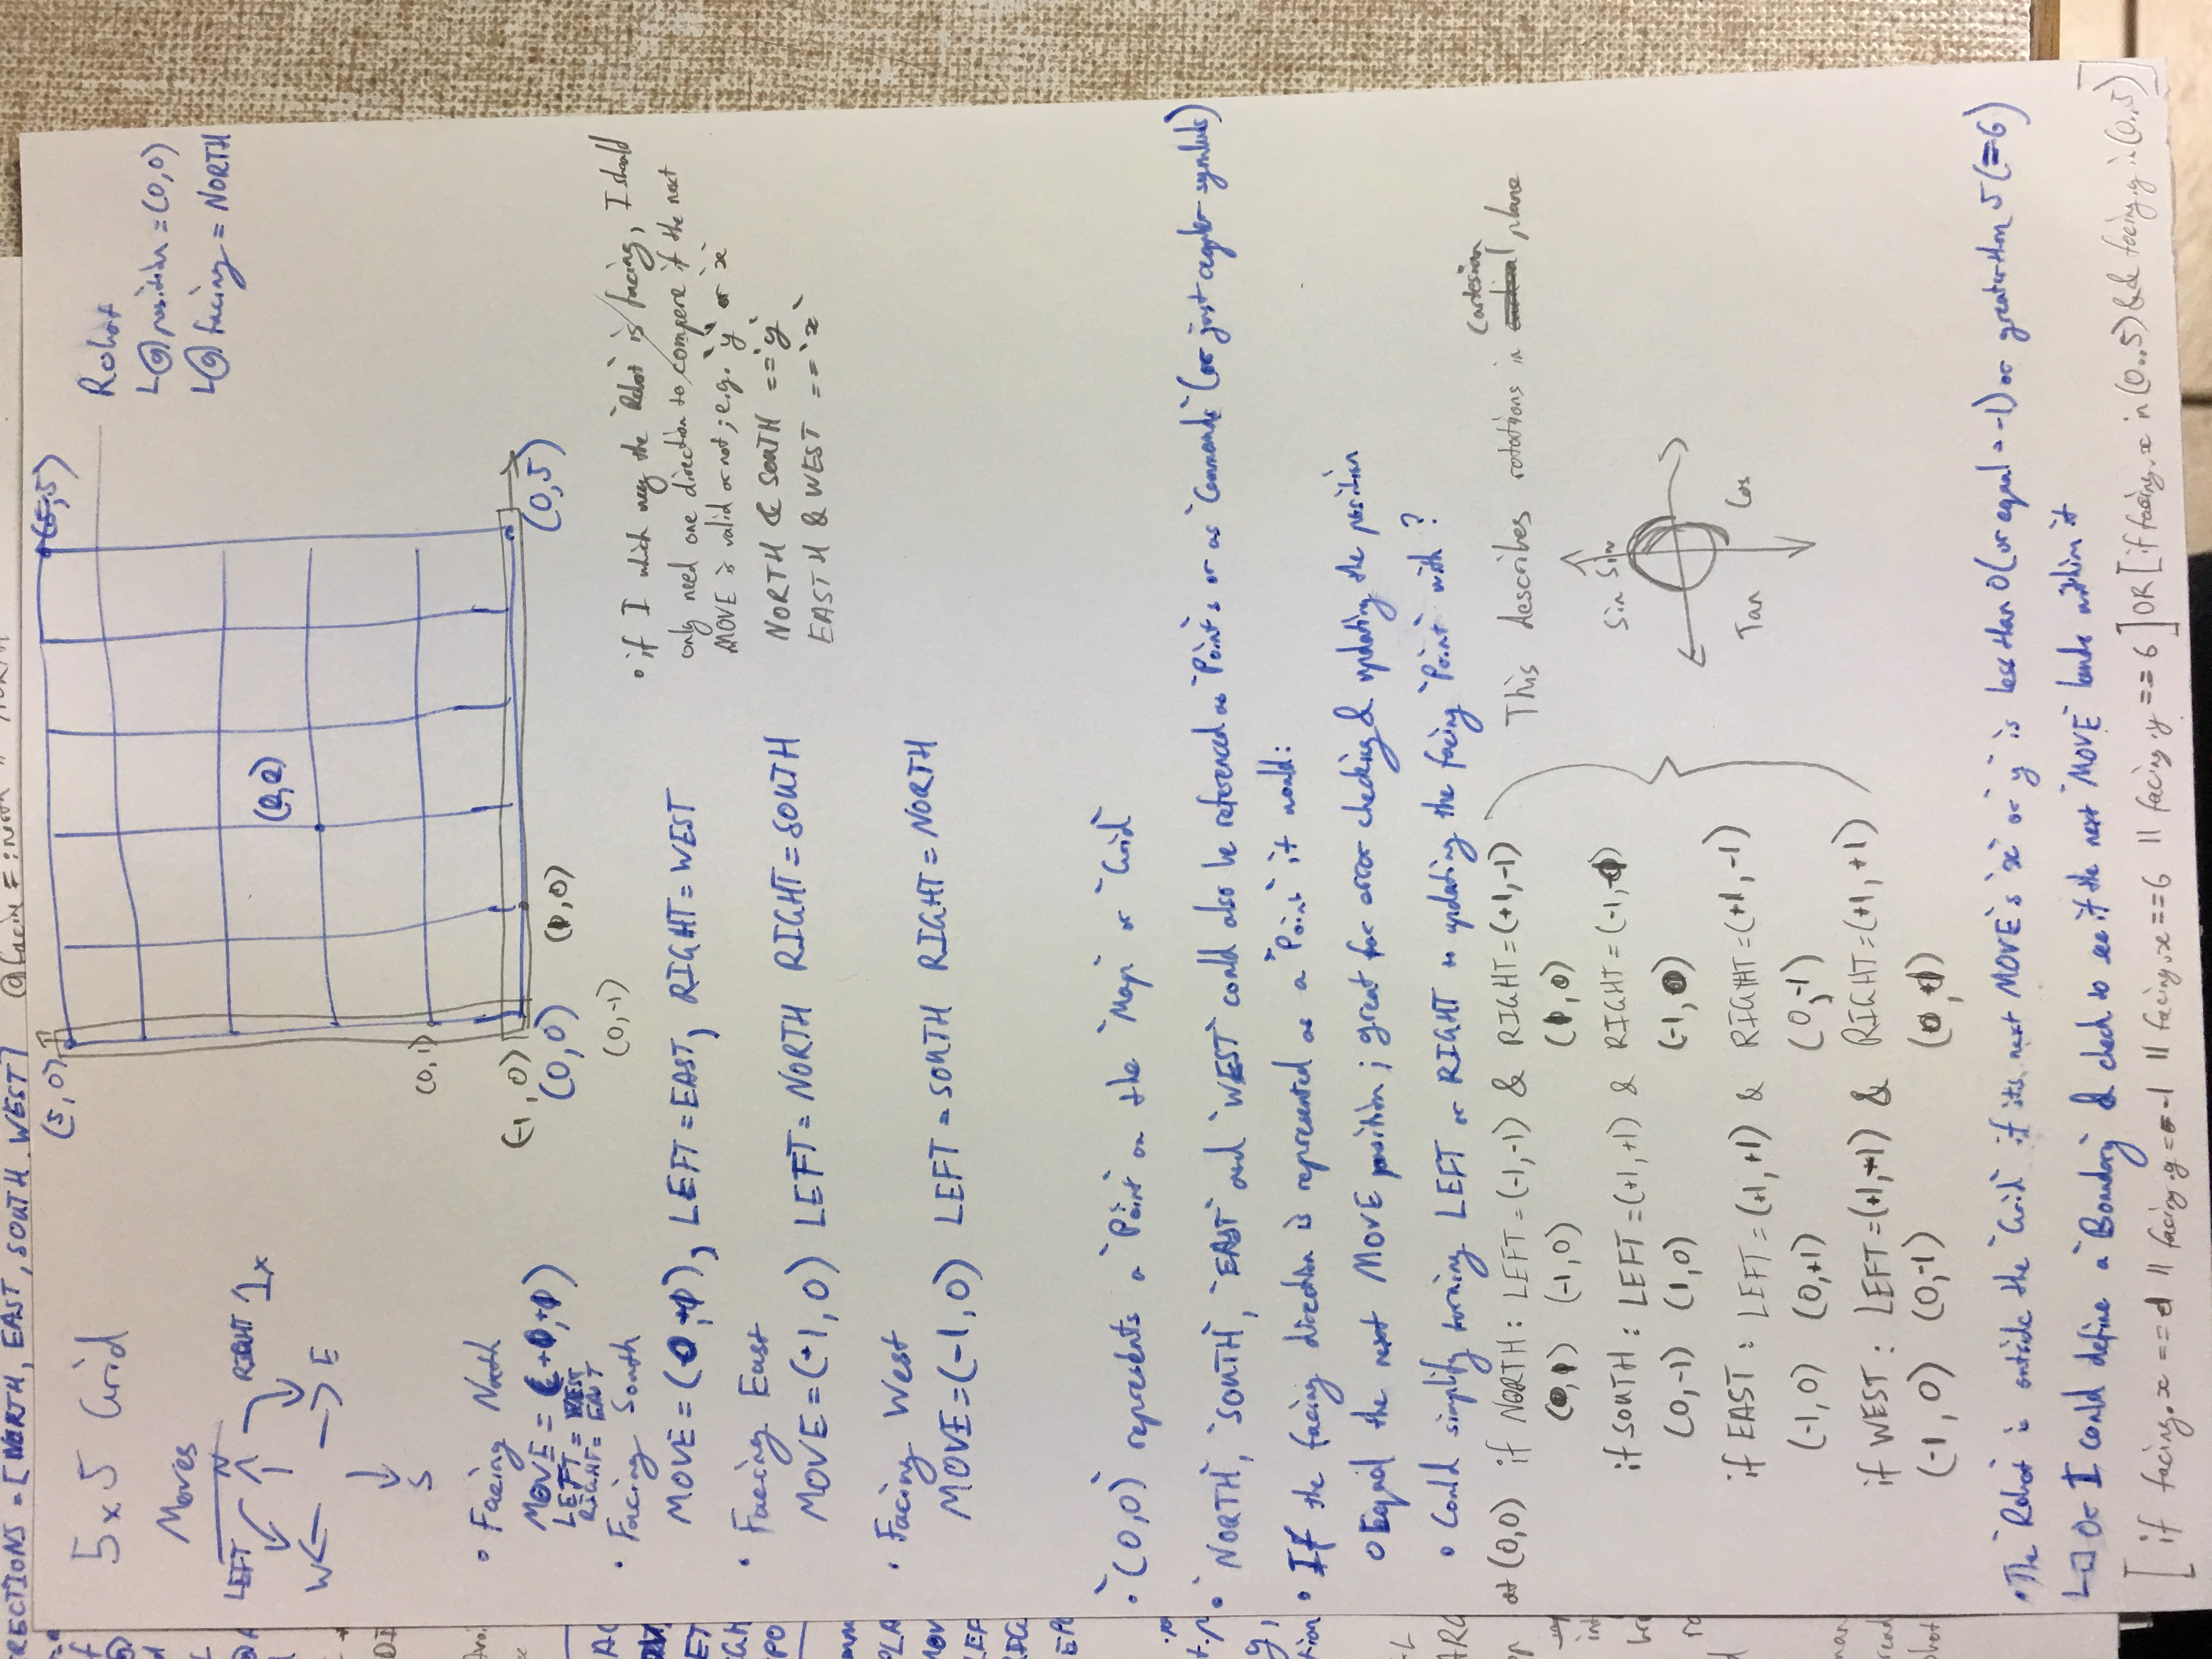 RECTIONS = [NORTH, EAST, SOUTH, WEST]
5x5 Grid
Moves
N
LEFT
RIGHT 1x
W
E
S
(5,0)
(5,5)
(2,2)
(0,1)
(-1, 0)
(0,0)
(1,0)
(0,5)
(0,-1)
Robot
L@position = (0,0)
L@facing = NORTH
• Facing North
MOVE =
LEFT = WEST
RIGHT = EAST
• Facing South
MOVE = , LEFT = EAST, RIGHT = WEST
• Facing East
MOVE = (+1, 0) LEFT = NORTH RIGHT = SOUTH
• Facing West
MOVE = (-1, 0) LEFT = SOUTH RIGHT = NORTH
• if I which way the `Robot` is facing, I should
only need one direction to compere if the next
MOVE is valid or not; e.g. `y` or `x`
NORTH & SOUTH == `y`
EASTH & WEST == `x`
• `(0,0)` represents a `Point` on the `Map` or `Grid`
• `NORTH`, `SOUTH`, `EAST` and `WEST` could also be referenced as `Point`s or as `Commands` (or just regular symbols)
• If the facing direction is represented as a `Point` it would:
o Equal the next MOVE position; great for error checking & updating the position
o Could simplify turning LEFT or RIGHT to updating the facing `Point` with ?
at (0,0) if NORTH : LEFT = (-1,-1) & RIGHT = (+1,-1)
(0,1) (-1,0) (1,0)
if SOUTH : LEFT = (+1,+1) & RIGHT =
(0,-1) (1,0) (-1,0)
if EAST : LEFT = (+1,+1) & RIGHT = (+1,-1)
(-1,0) (0,+1) (0,-1)
if WEST : LEFT = & RIGHT = (+1,+1)
(-1,0) (0,-1)
This describes rotations in Cartesian plane
Sin Sin
Tan Cos
• The `Robot` is outside the `Grid` if its next MOVE's `x` or `y` is less than 0 (or equal = -1) or greater than 5 (==6)
L□ Or I could define a `Boundary` & check to see if the next `MOVE` lands within it
[ if facing.x == || facing.y == -1 || facing.x == 6 || facing.y == 6 ] OR [ if facing.x in (0..5) && facing.y in (0..5) ]